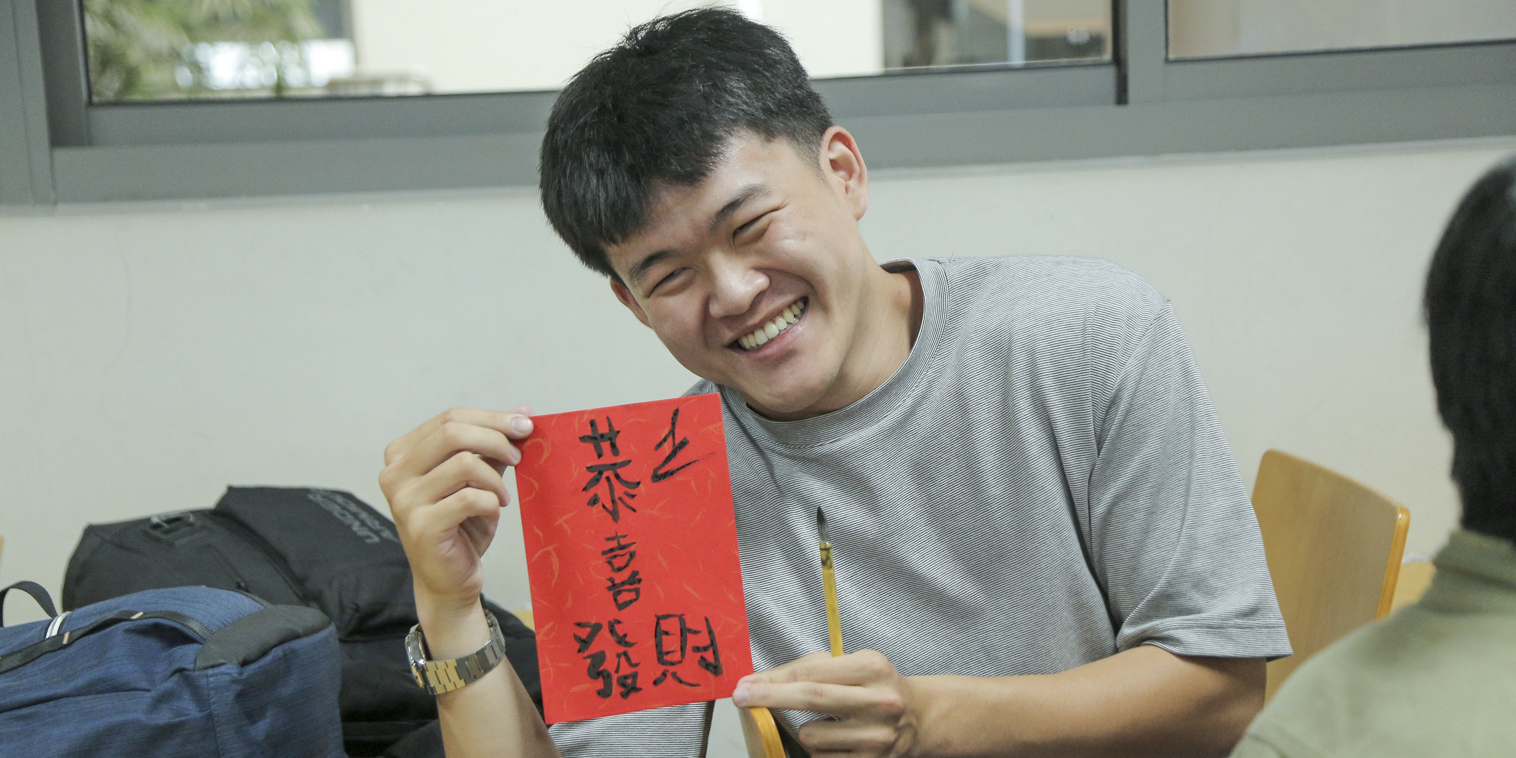 恭喜發
財